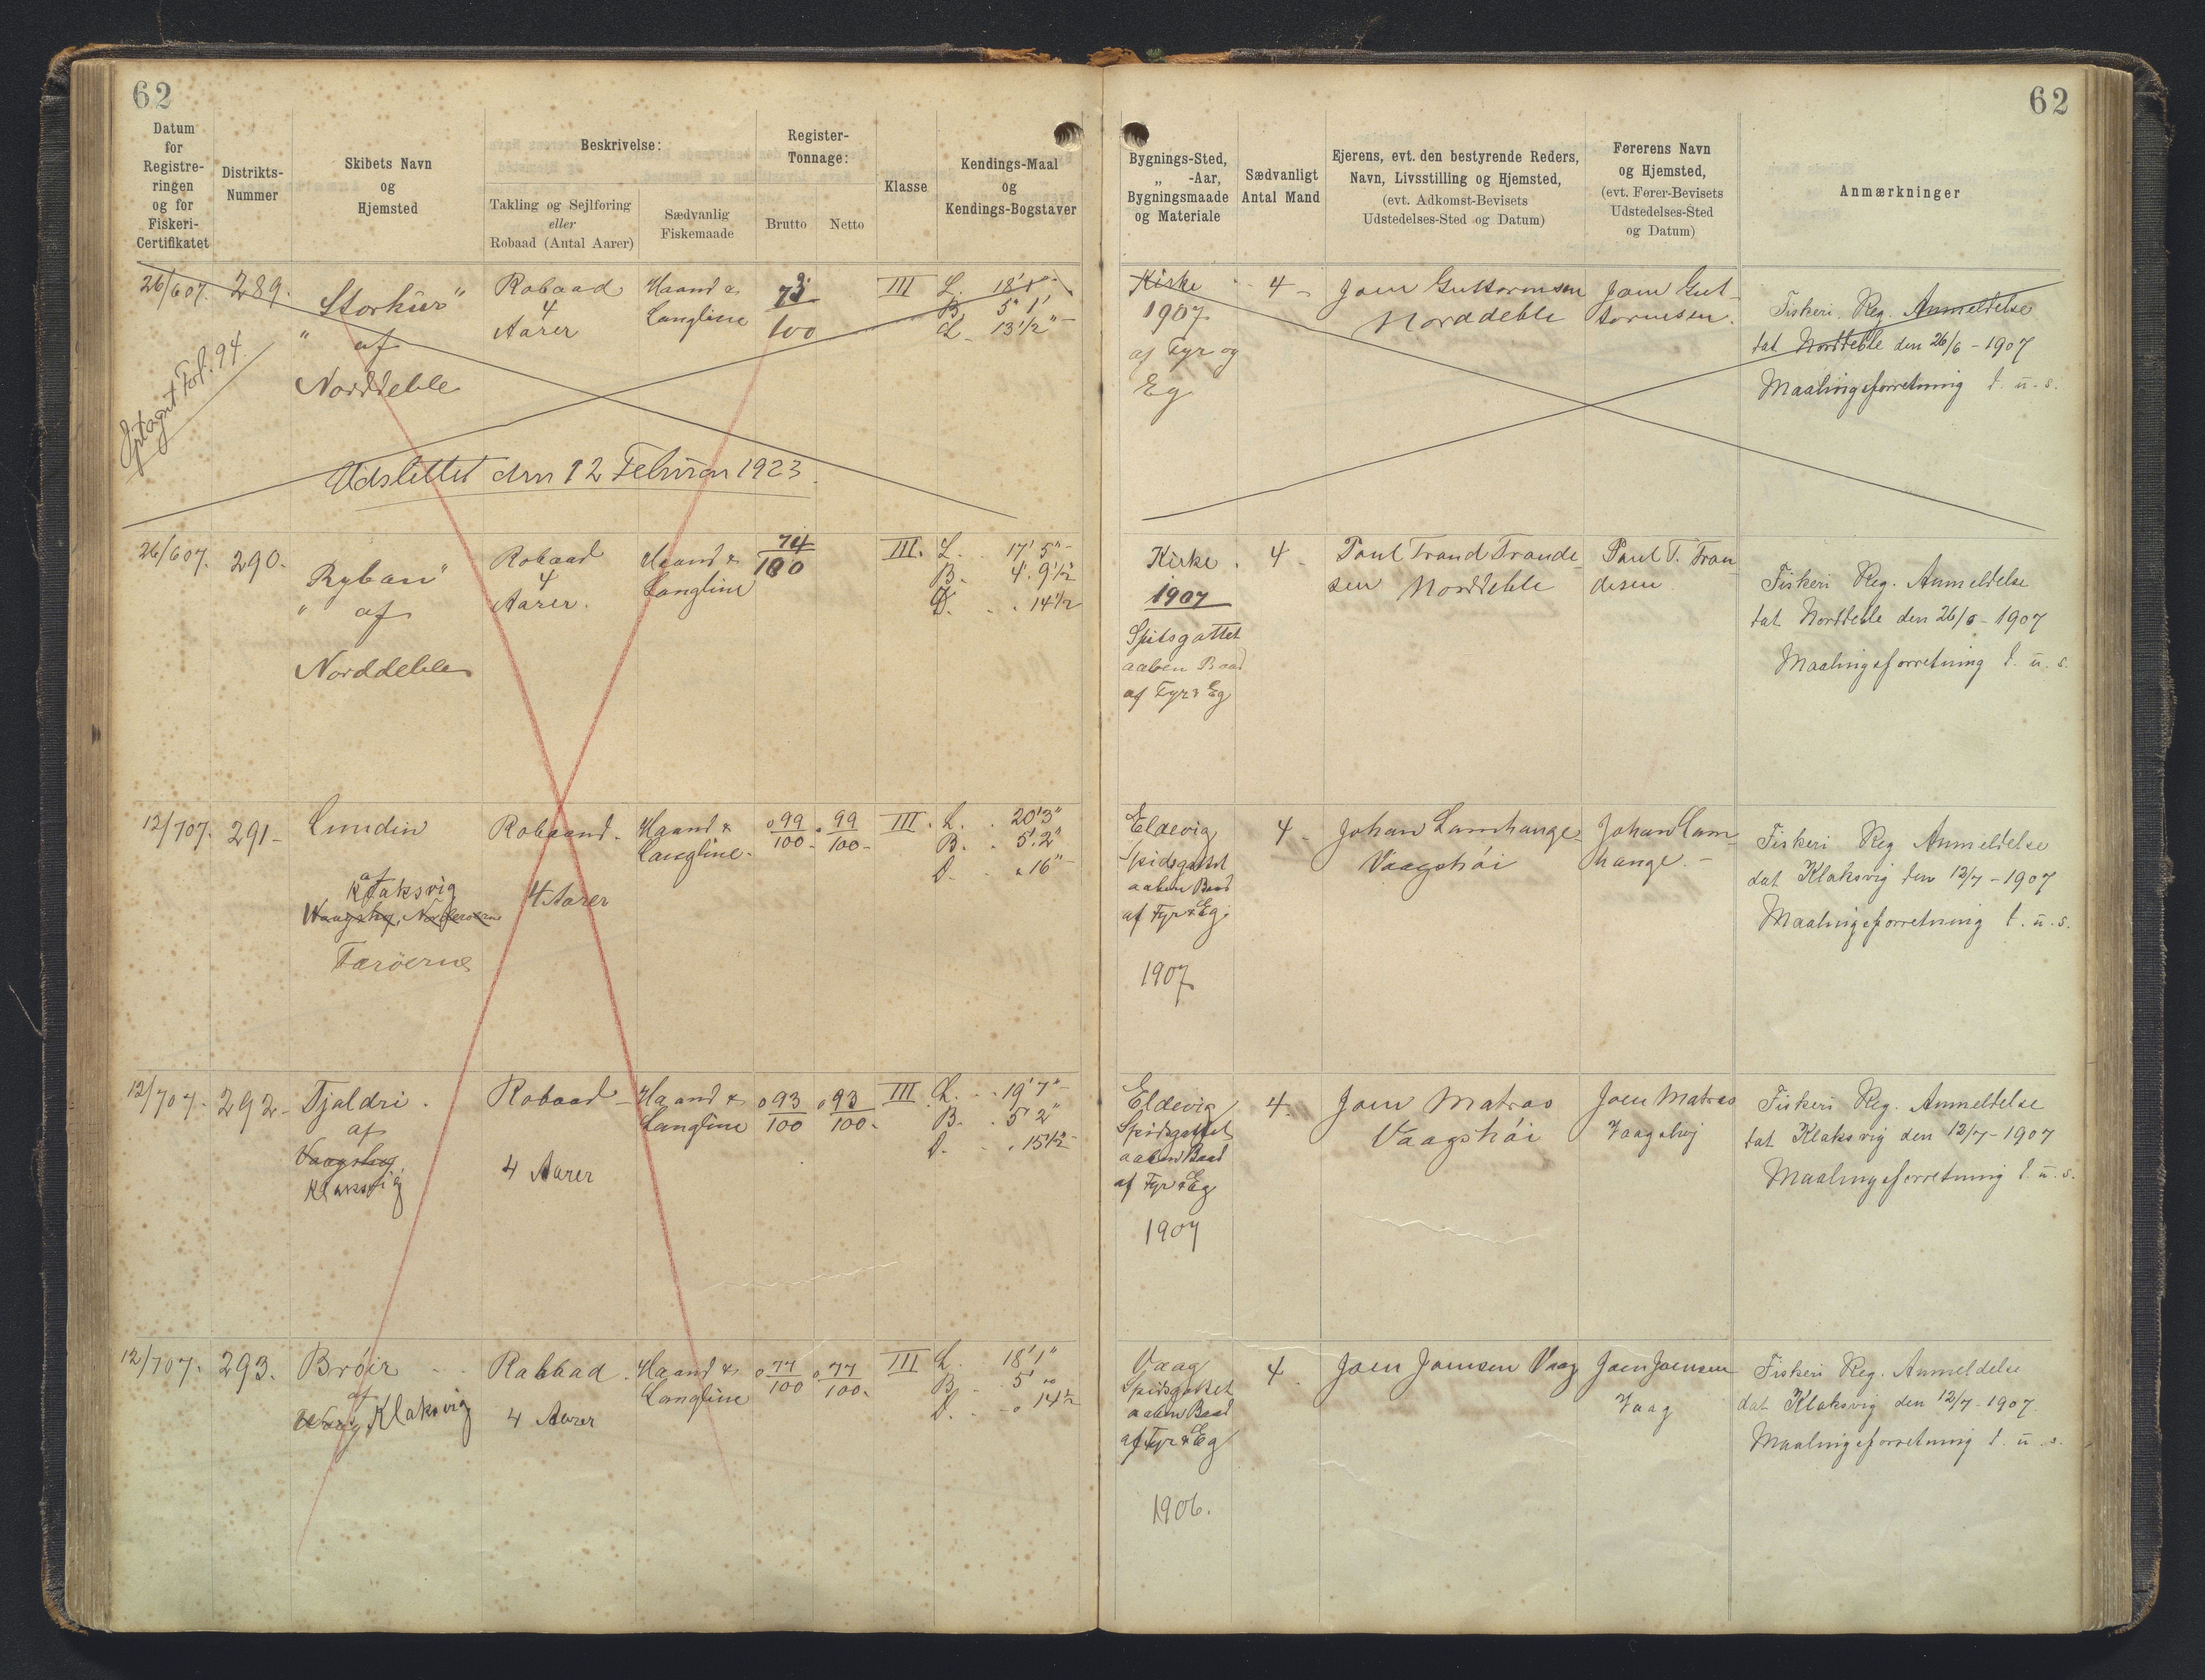 62
62
Datum
for
Registre-
ringen
og for
Fiskeri-
Certifikatet
Distrikts-
Nummer
Skibets Navn
og
Hjemsted
Beskrivelse:
Takling og Sejlføring
eller
Robaad (Antal Aarer)
Sædvanlig
Fiskemaade
Register-
Tonnage:
Brutto
Netto
Klasse
Kendings-Maal
og
Kendings-Bogstaver
Bygnings-Sted,
„ -Aar,
Bygningsmaade
og Materiale
Sædvanligt
Antal Mand
Ejerens, evt. den bestyrende Reders,
Navn, Livsstilling og Hjemsted,
(evt. Adkomst-Bevisets
Udstedelses-Sted og Datum)
Førerens Navn
og Hjemsted,
(evt. Fører-Bevisets
Udstedelses-Sted
og Datum)
Anmærkninger
26/607.
289.
Storkur"
" af
Norddeble
Robaad
4
Aarer
Haand &
Langline
73
100
III
L. 18'1"
B. 5' 1'
D. 13 1/2"
Fol. 94
Udslettet den 12 Februar 1923.
Kirke
1907
af Fyr og
Eg
4 -
Joen Guttormsen
Norddeble
Joen Gut-
tormsen.
Fiskeri. Reg. Anmeldelse
dat. Norddeble den 26/6 - 1907
Maalingsforretning d. u. s.
26/607.
290.
Ryban"
" af
Norddeble
Robaad
4
Aarer.
Haand &
Langline
74
100
III.
L. . 17' 5"
B. 4' 9 1/2
D. . . 14 1/2
Kirke .
1907
Spidsgattet
aaben Baad
af Fyr & Eg
4 -
Poul Trond Tronde-
sen Norddeble
Poul T. Tron-
desen
Fiskeri Reg. Anmeldelse
dat Norddeble den 26/6 - 1907
Maalingsforretning d. u. s.
12/707.
291-
Lundin
af
Klaksvig
Waagshøj, Norderøerne
Færöerne
Robaad.
4 Aarer
Haand &
Langline.
0 99
100
0 99
100
III.
L. . 20'3"
B. . 5'.2"
D. . 16"
Eldevig
Spidsgattet
aaben Baad
af Fyr & Eg.
1907
4 -
Johan Lamhauge
Vaagshöi
Johan Lam-
hauge. -
Fiskeri Reg Anmeldelse
dat Klaksvig den 12/7 - 1907
Maalingsforretning d. u. s.
12/707.
292-
Tjaldri .
af
Vaagshøj
Klaksvig
Robaad
4 Aarer
Haand &
Langline
0 93
100
0 93
100.
III
L. . 19'7"
B. . 5' 2"
D. . . 15 1/2"
Eldevig
Spidsgattet
aaben Baad
af Fyr & Eg
1907
4.
Joen Matras
Vaagshöi
Joen Matras
Vaagshøj
Fiskeri Reg. Anmeldelse
dat Klaksvig den 12/7 - 1907
Maalingsforretning d. u. s.
12/707.
293.
Bróir
af
Waag, Klaksvig
Robaad
4 Aarer
Haand &
Langline
0 77
100
0 77
100.
III
L. 18'1"
B. . 5' "
D. . 14 1/2
Vaag
Spidsgattet
aaben Baad
af Fyr & Eg
1906.
4.
Joen Joensen Vaag
Joen Joensen
Vaag
Fiskeri Reg. Anmeldelse
dat Klaksvig den 12/7 - 1907.
Maalingsforretning d. u. s.